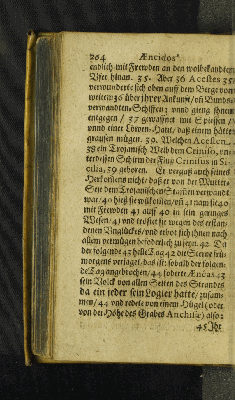 204 Æneidos
endlich mit Frewden an den wolbekandten
Ufer hinan. 35. Aber 36 Acestes 35
verwunderte sich oben auff dem Berge von
weitem 36 über ihrer Ankunft / uñ Bunds-
verwandten Schiffen; unnd gieng ihnen
entgegen / 37 gewaffnet mit Spiessen /
unnd einer Löwen-Haut / daß einem hätte
grausen mügen. 39. Welchen Acesten
38 ein Trojanisch Weib dem Crimiso, un-
ter dessen Schirm der Fluß Crinisus in Si-
cilia, 39 geboren. Er vergaß auch seines
Herkomens nicht / daß er von der Mutter
Seite dem Trojanischen Stamm verwandt
war / 40 hieß sie willkommen / uñ 41 nam sie
mit Frewden 41 auff 40 in sein geringes
Wesen / 41 und tröstet sie wegen des erstan-
denen Unglückes / und erbot sich ihnen nach
allem vermügen beförderlich zu seyn. 42 Da
der folgende 43 helle Tag 42 die Sterne früh-
morgens verjaget / das ist: sobald der folgen-
de Tag angebrochen / 44 foderte Æneas 43
sein Volck von allen Seiten des Strandes
da ein jeder sein Logier hatte / zusam-
men / 44 und redete von einem Hügel (oder
von der Höhe des Grabes Anchisæ) also:
45 Ihr